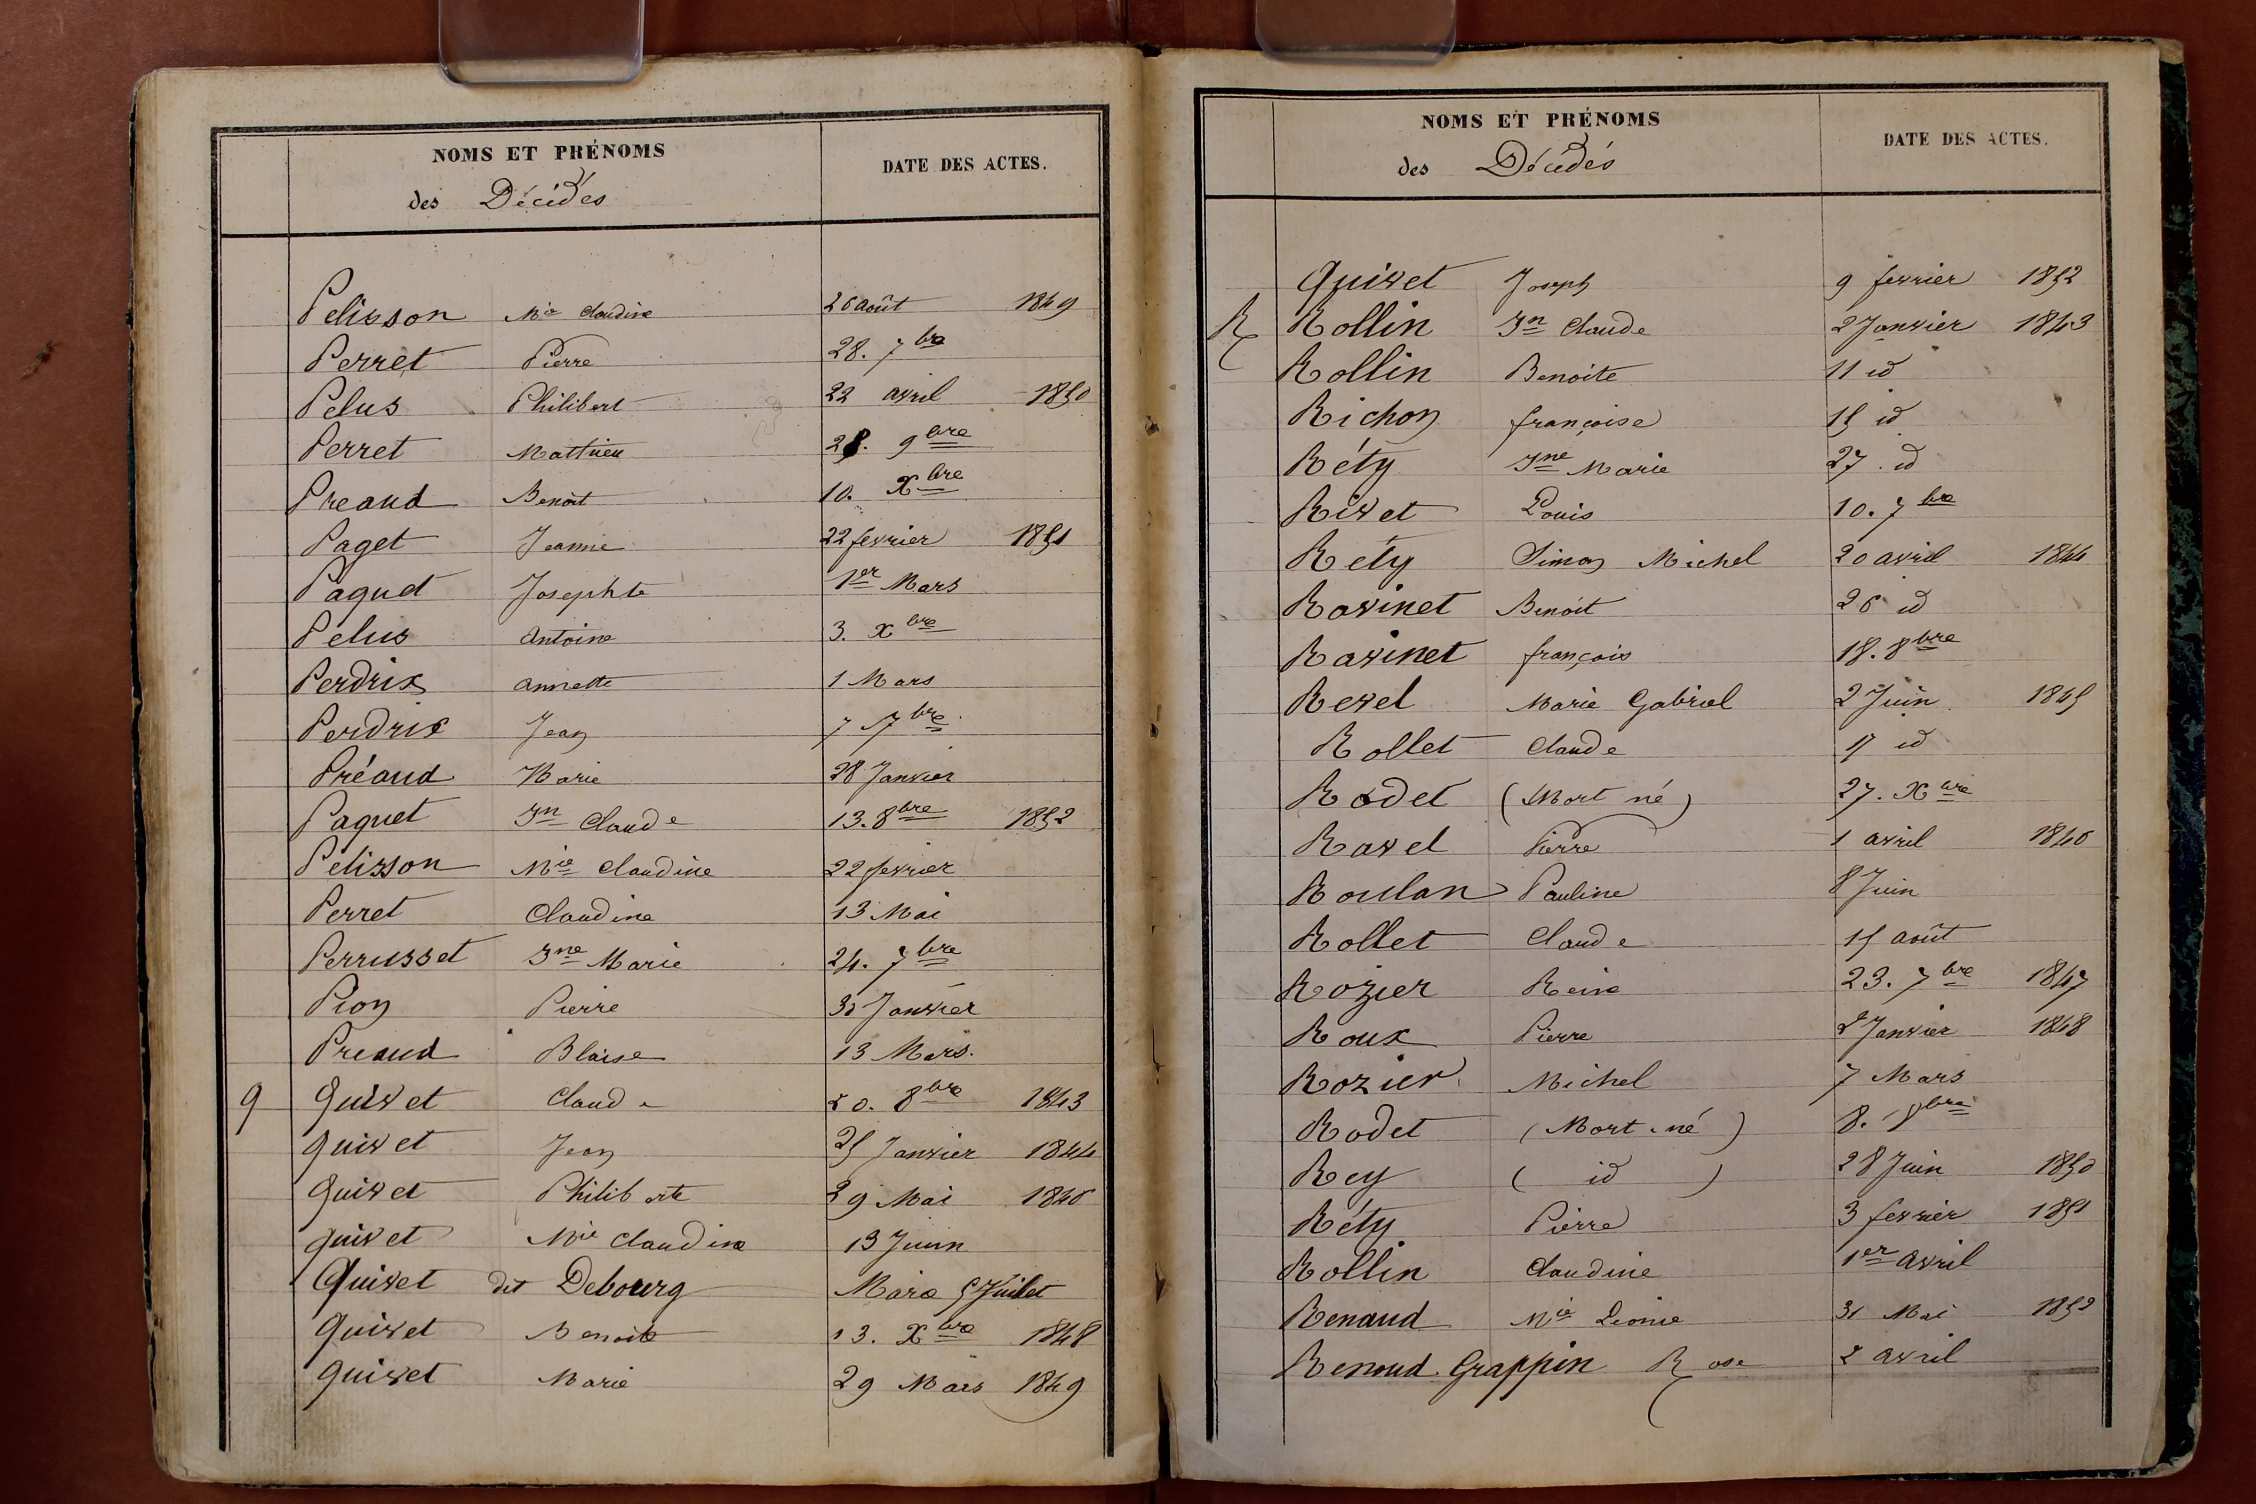 NOMS ET PRÉNOMS
DATE DES ACTES.
des Décédés
Pelisson Mie Claudine 26 août 1849
Perret Pierre 28. 7bre
Pelus Philibert 22 avril 1850
Perret Mathieu 28. 9bre
Preaud Benoit 10. Xbre
Paget Jeanne 22 fevrier 1851
Paquet Josephte 1er Mars
Pelus Antoine 3. Xbre
Perdrix Annette 1 Mars
Perdrix Jean 7 7bre
Préaud Marie 28 Janvier
Paquet Jn Claude 13. 8bre 1852
Pelisson Mie Claudine 22 fevrier
Perret Claudine 13 Mai
Perrusset Jne Marie 24. 7bre
Pion Pierre 31 Janvier
Preaud Blaise 13 Mars.
Q Quivet Claude 20. 8bre 1843
Quivet Jean 25 Janvier 1844
Quivet Philiberte 29 Mai 1846
Quivet Mie Claudine 13 Juin
Quivet dit Debourg Marie 5 Juillet
Quivet Benoite 13. Xbre 1848
Quivet Marie 29 Mars 1849
NOMS ET PRÉNOMS
DATE DES ACTES.
des Décédés
Quivet Joseph 9 fevrier 1852
R Rollin Jn Claude 2 Janvier 1843
Rollin Benoite 11 id
Richon françoise 15 id
Réty Jne Marie 27. id
Rivet Louis 10. 7bre
Réty Simon Michel 20 avril 1844
Ravinet Benoit 26 id
Ravinet françois 18. 8bre
Revel Marie Gabriel 2 Juin 1845
Rollet Claude 17 id
Rodet (Mort né) 27. Xbre
Ravel Pierre 1 avril 1846
Roulan Pauline 8 Juin
Rollet Claude 15 août
Rozier Reine 23. 7bre 1847
Roux Pierre 2 Janvier 1848
Rozier Michel 7 Mars
Rodet (Mort né) 8. 8bre
Rey ( id ) 28 Juin 1850
Réty Pierre 3 fevrier 1851
Rollin Claudine 1er avril
Renaud Mie Leonie 31 Mai 1852
Renoud. Grappin Rose 2 avril